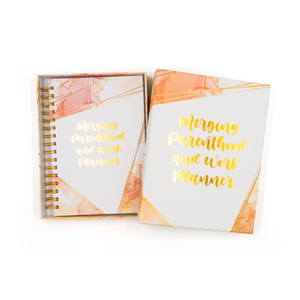 Merging
Parenthood
and Work
Planner
Merging
Parenthood
and Work
Planner